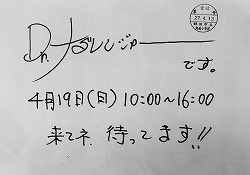 Dr.ナダレンジャー
です。
4月19日(日) 10:00~16:00
来てネ 待ってます!!
27.4.13